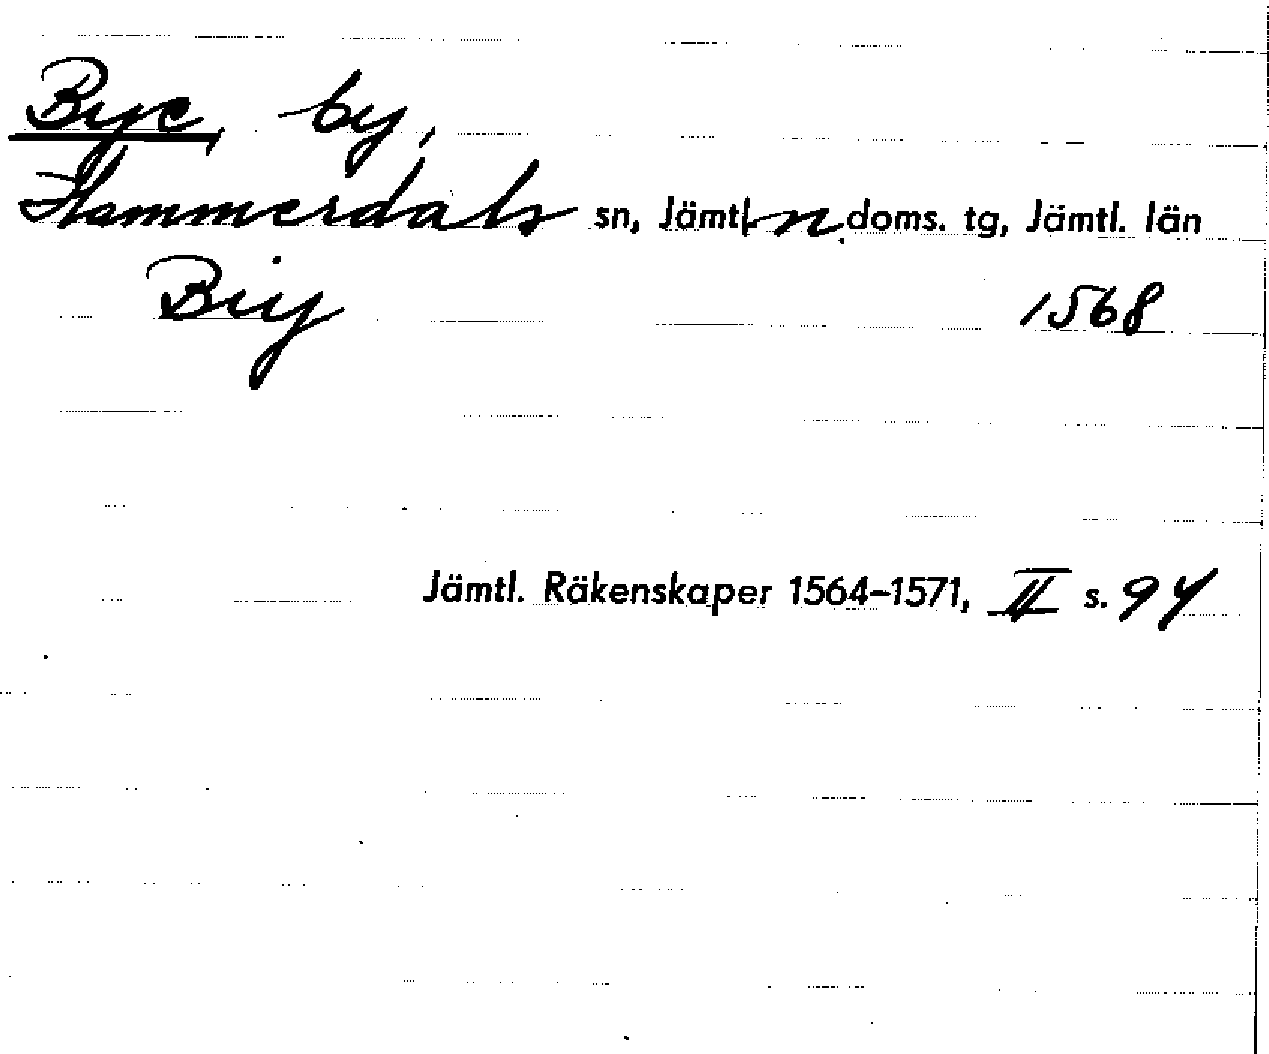 Bye, by,
Hammerdals sn, Jämtl. n. doms. tg, Jämtl. län
Biy 1568
Jämtl. Räkenskaper 1564–1571, II s. 94